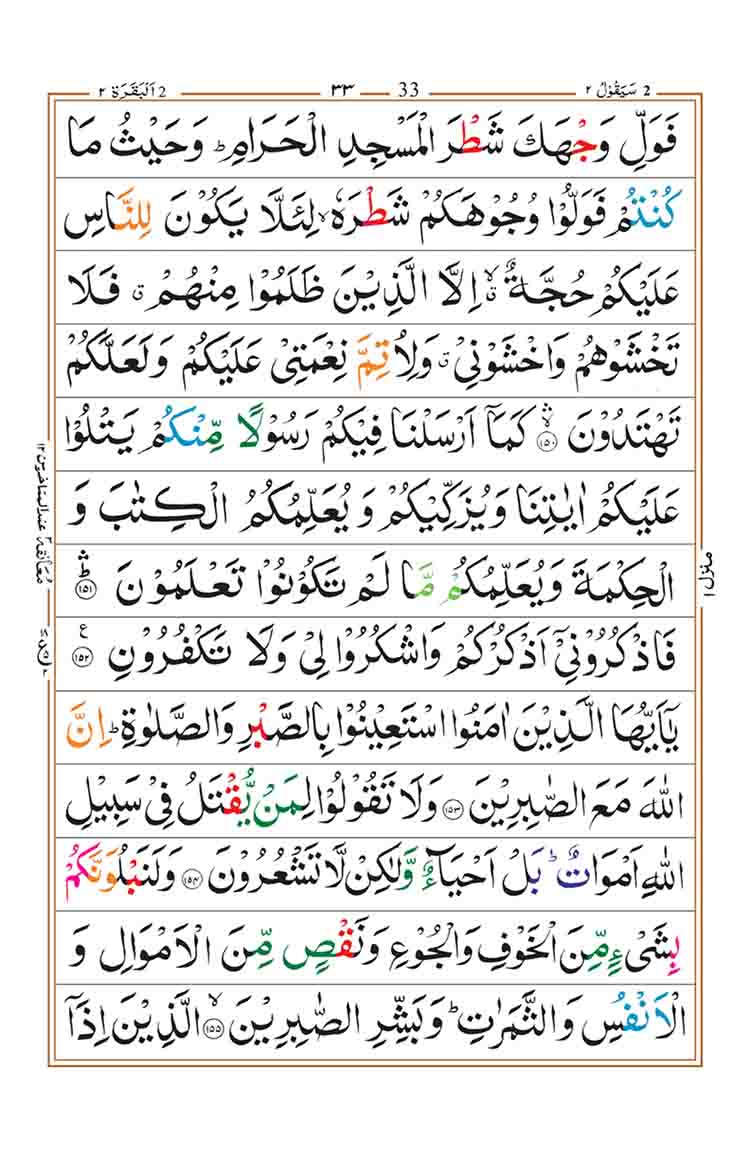 2 سَيَقُوْلُ ٢
33 ٣٣
2 اَلْبَقَرَة ٢
فَوَلِّ وَجْهَكَ شَطْرَ الْمَسْجِدِ الْحَرَامِ ؕ وَحَيْثُ مَا
كُنْتُمْ فَوَلُّوْا وُجُوْهَكُمْ شَطْرَهٗ ۙ لِئَلَّا يَكُوْنَ لِلنَّاسِ
عَلَيْكُمْ حُجَّةٌ ۙۗ اِلَّا الَّذِيْنَ ظَلَمُوْا مِنْهُمْ ۗ فَلَا
تَخْشَوْهُمْ وَاخْشَوْنِيْ ۗ وَلِاُتِمَّ نِعْمَتِيْ عَلَيْكُمْ وَلَعَلَّكُمْ
تَهْتَدُوْنَ ۙ۝١٥٠ كَمَاۤ اَرْسَلْنَا فِيْكُمْ رَسُوْلًا مِّنْكُمْ يَتْلُوْا
عَلَيْكُمْ اٰيٰتِنَا وَيُزَكِّيْكُمْ وَيُعَلِّمُكُمُ الْكِتٰبَ وَ
الْحِكْمَةَ وَيُعَلِّمُكُمْ مَّا لَمْ تَكُوْنُوْا تَعْلَمُوْنَ ؕۛ۝١٥١
فَاذْكُرُوْنِيْۤ اَذْكُرْكُمْ وَاشْكُرُوْا لِيْ وَلَا تَكْفُرُوْنِ ۝١٥٢ ع
يٰۤاَيُّهَا الَّذِيْنَ اٰمَنُوا اسْتَعِيْنُوْا بِالصَّبْرِ وَالصَّلٰوةِ ؕ اِنَّ
اللّٰهَ مَعَ الصّٰبِرِيْنَ ۝١٥٣ وَلَا تَقُوْلُوْا لِمَنْ يُّقْتَلُ فِيْ سَبِيْلِ
اللّٰهِ اَمْوَاتٌ ؕ بَلْ اَحْيَآءٌ وَّلٰكِنْ لَّا تَشْعُرُوْنَ ۝١٥٤ وَلَنَبْلُوَنَّكُمْ
بِشَيْءٍ مِّنَ الْخَوْفِ وَالْجُوْعِ وَنَقْصٍ مِّنَ الْاَمْوَالِ وَ
الْاَنْفُسِ وَالثَّمَرٰتِ ؕ وَبَشِّرِ الصّٰبِرِيْنَ ۙ۝١٥٥ الَّذِيْنَ اِذَاۤ
منزل ١
معانقة ٢ عند المتأخرين ١٢